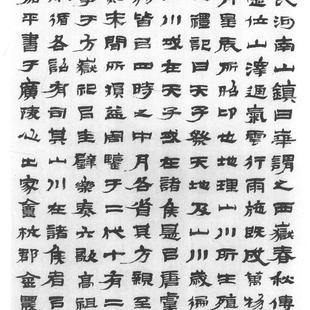 氏河南山鎮曰華謂之西嶽春秋傳
定位山澤通氣雲行雨施既成萬物
月星辰所昭卬也地理山川所生殖
之禮記曰天子祭天地及山川歲徧
山川或在天子或在諸侯是㠯唐虞
狩皆㠯四時之中月各省其方親至
則未聞所損益周鑒于二代十有二
事于方嶽祀㠯圭璧樂奏六歌高祖
承循各詔有司其山川在諸侯者㠯
嘉平書于廣陵心出家盦杭郡金農